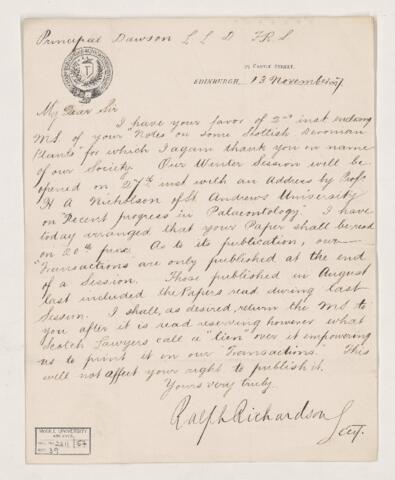 Principal Dawson L L D F.R.S
CASTLE STREET,
EDINBURGH, 13 November 77
My Dear Sir
I have your favor of 2nd inst enclosing
MS. of your "Notes on Some Scottish Devonian
Plants" for which I again thank you in name
of our Society. Our Winter Session will be
opened on 27th inst with an Address by Profr
H A Nicholson of St Andrews University
on "Recent progress in Palaeontology". I have
today arranged that your Paper shall be read
on 20th prox. As to its publication, our
"Transactions" are only published at the end
of a Session. Those published in August
last included the Papers read during last
Session. I shall, as desired, return the MS. to
you after it is read reserving however what
Scotch Lawyers call a "lien" over it empowering
us to print it in our "Transactions." This
will not affect your right to publish it.
Yours very truly
Ralph Richardson
Secy.
McGILL UNIVERSITY
ARCHIVES
2211 54
39